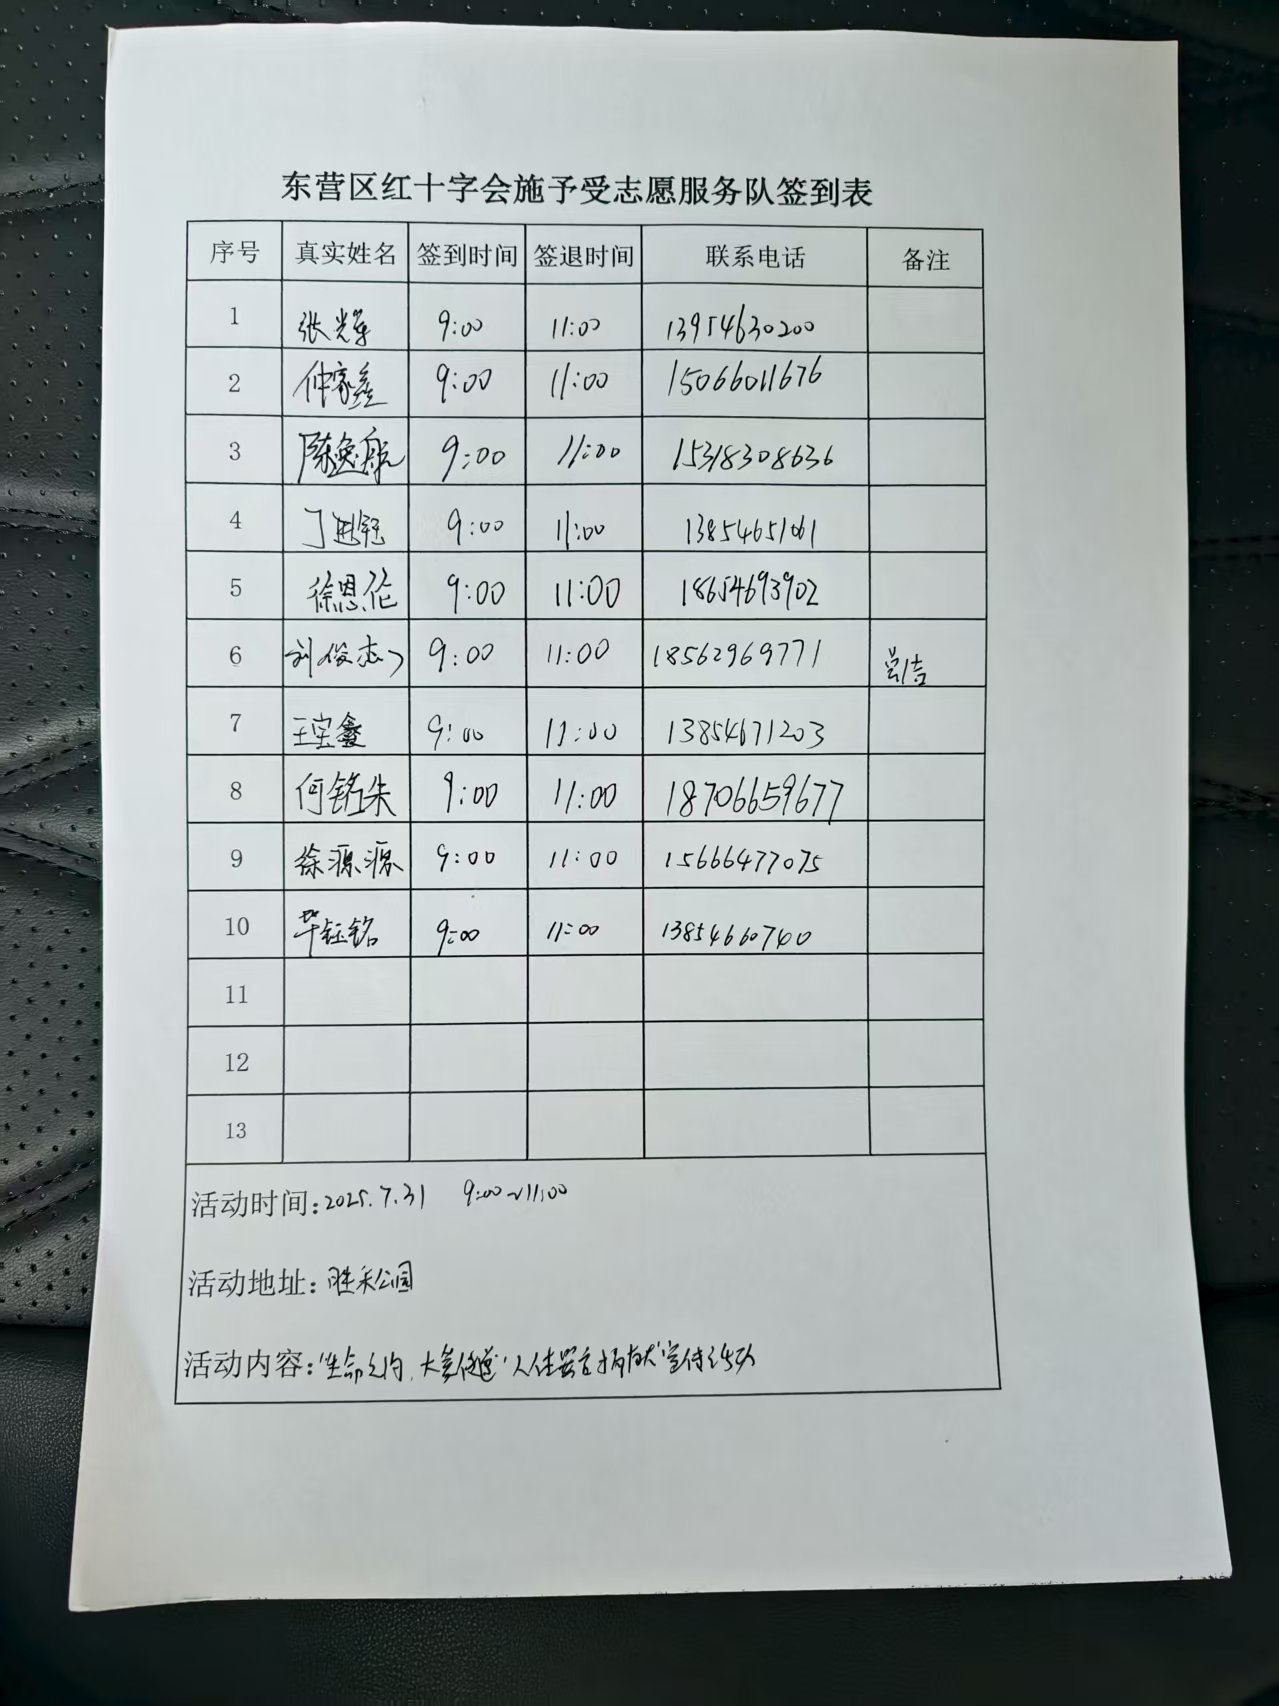 东营区红十字会施予受志愿服务队签到表
序号 真实姓名 签到时间 签退时间 联系电话 备注
1 张光华 9:00 11:00 13954630200
2 仲家鑫 9:00 11:00 15066011676
3 陈逸航 9:00 11:00 15318308636
4 丁 9:00 11:00 13854651061
5 徐恩伦 9:00 11:00 18654693902
6 刘俊杰 9:00 11:00 18562969771
7 王宝鑫 9:00 11:00 13854671203
8 何铭朱 9:00 11:00 18706659677
9 徐源源 9:00 11:00 15666477075
10 毕钰铭 9:00 11:00 13854660740
11
12
13
活动时间:2025.7.31 9:00~11:00
活动地址:胜采公园
活动内容:"生命之约,大爱传递"人体器官捐献宣传活动